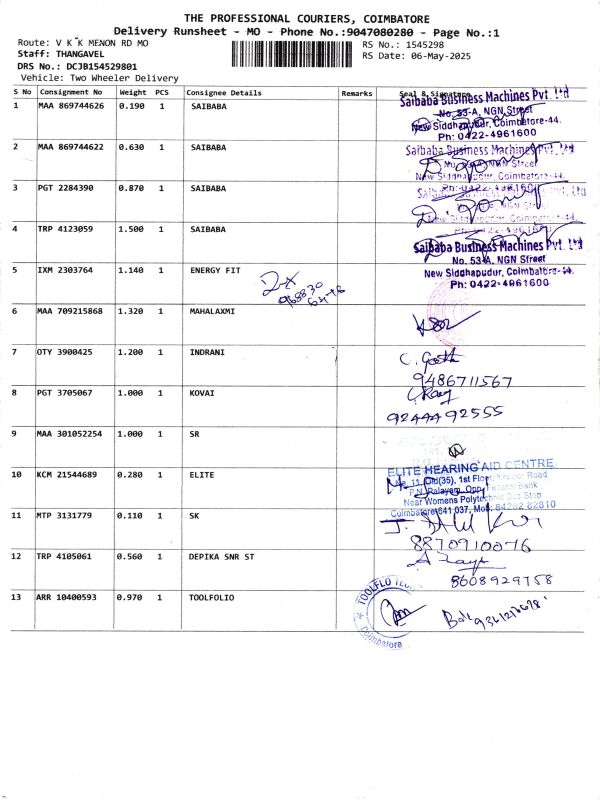 THE PROFESSIONAL COURIERS, COIMBATORE
Delivery Runsheet - MO - Phone No.:9047080280 - Page No.:1
Route: V K K MENON RD MO
RS No.: 1545298
Staff: THANGAVEL
RS Date: 06-May-2025
DRS No.: DCJB154529801
Vehicle: Two Wheeler Delivery
S No Consignment No Weight PCS Consignee Details Remarks Seal & Signature
1 MAA 869744626 0.190 1 SAIBABA
Saibaba Business Machines Pvt. Ltd
No. 53-A, NGN Street
New Siddhapudur, Coimbatore-44.
Ph: 0422-4961600
2 MAA 869744622 0.630 1 SAIBABA
Saibaba Business Machines Pvt. Ltd
NGN Street
New Siddhapudur, Coimbatore-44.
3 PGT 2284390 0.870 1 SAIBABA
Ph: 0422-4961600
4 TRP 4123059 1.500 1 SAIBABA
Saibaba Business Machines Pvt. Ltd
No. 53-A, NGN Street
New Siddhapudur, Coimbatore-44.
Ph: 0422-4961600
5 IXM 2303764 1.140 1 ENERGY FIT
6 MAA 709215868 1.320 1 MAHALAXMI
7 OTY 3900425 1.200 1 INDRANI
9486711567
8 PGT 3705067 1.000 1 KOVAI
9244492555
9 MAA 301052254 1.000 1 SR
10 KCM 21544689 0.280 1 ELITE
ELITE HEARING AID CENTRE
No. 11, Old(35), 1st Floor, Road
P.N. Palayam, Opp. Federal Bank
Near Womens Polytechnic Bus Stop
Coimbatore-641 037, Mob: 84282 82810
11 MTP 3131779 0.110 1 SK
8870910076
12 TRP 4105061 0.560 1 DEPIKA SNR ST
8608929758
13 ARR 10400593 0.970 1 TOOLFOLIO
TOOLFLO
Coimbatore